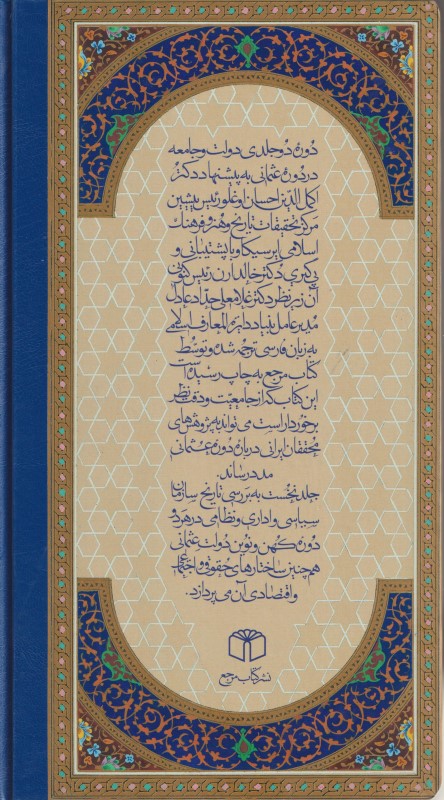 دورهٔ دوجلدی دولت و جامعه
در دورهٔ عثمانی به پیشنهاد دکتر
اکمل‌الدین احسان‌اوغلو رئیس پیشین
مرکز تحقیقات تاریخ و هنر و فرهنگ
اسلامی ایرسیکا و با پشتیبانی و
پی‌گیری دکتر خالد ارن رئیس کنونی
آن زیر نظر دکتر غلامعلی حداد عادل
مدیر عامل بنیاد دایرةالمعارف اسلامی
به زبان فارسی ترجمه شده و توسط
کتاب مرجع به چاپ رسیده است
این کتاب که از جامعیت و دقت نظر
برخوردار است می‌تواند به پژوهش‌های
محققان ایرانی دربارهٔ دورهٔ عثمانی
مدد رساند.
جلد نخست به بررسی تاریخ سازمان
سیاسی و اداری و نظامی در هر دو
دورهٔ کهن و نوین دولت عثمانی
هم‌چنین ساختارهای حقوقی و اجتماعی
و اقتصادی آن می‌پردازد.
نشر کتاب مرجع